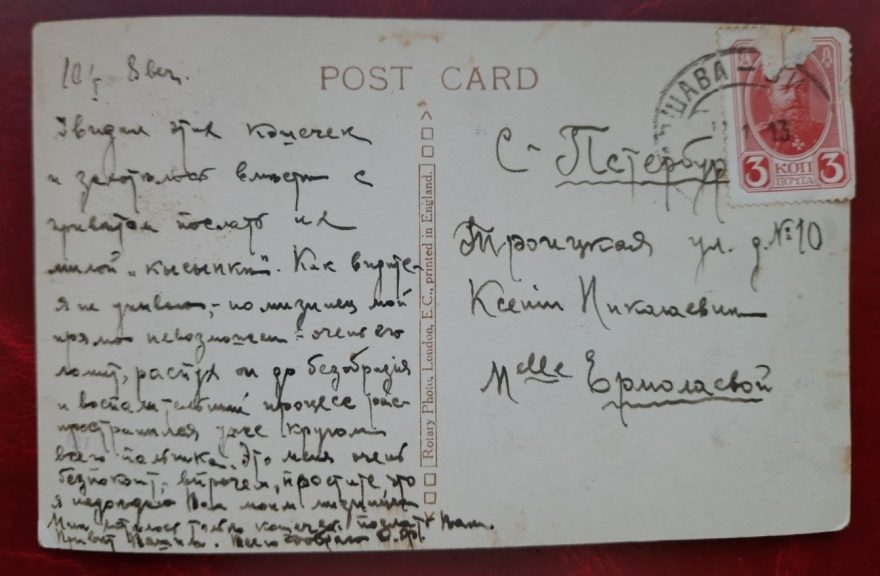 10/I 8 веч.
POST CARD
Увидал этих кошечек
и захотелось вместе с
приветом послать их
милой „кысыньки". Как видите-
я не унываю,- но мизинец мой
прямо невозможен - очень его
ломит, распух он до безобразия
и воспалительный процесс рас-
пространился уже кругом
всего пальчика. Это меня очень
безпокоит, впрочем, простите что
я надоедаю Вам моим мизинцем
Мне хотелось только кошечек послать Вам.
Привет Вашим. Всего доброго
Rotary Photo, London, E.C., printed in England.
ШАВА
13
3 КОП 3
ПОЧТА
С-Петербур
Троицкая ул. д. №10
Ксении Николаевне
Melle Ермолаевой